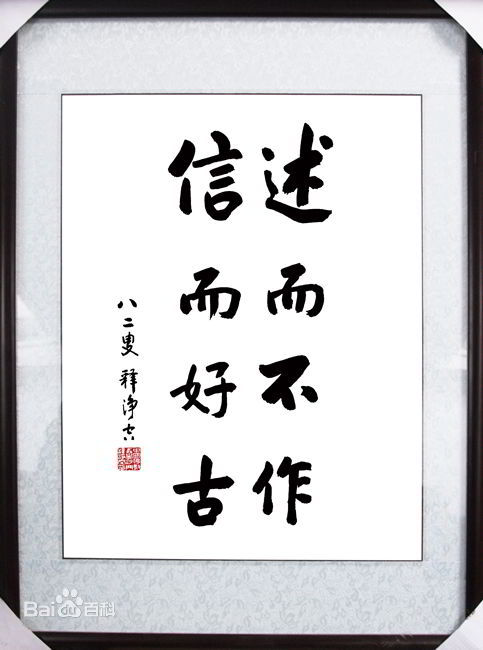 述而不作
信而好古
八二叟 释净空
Bai百科